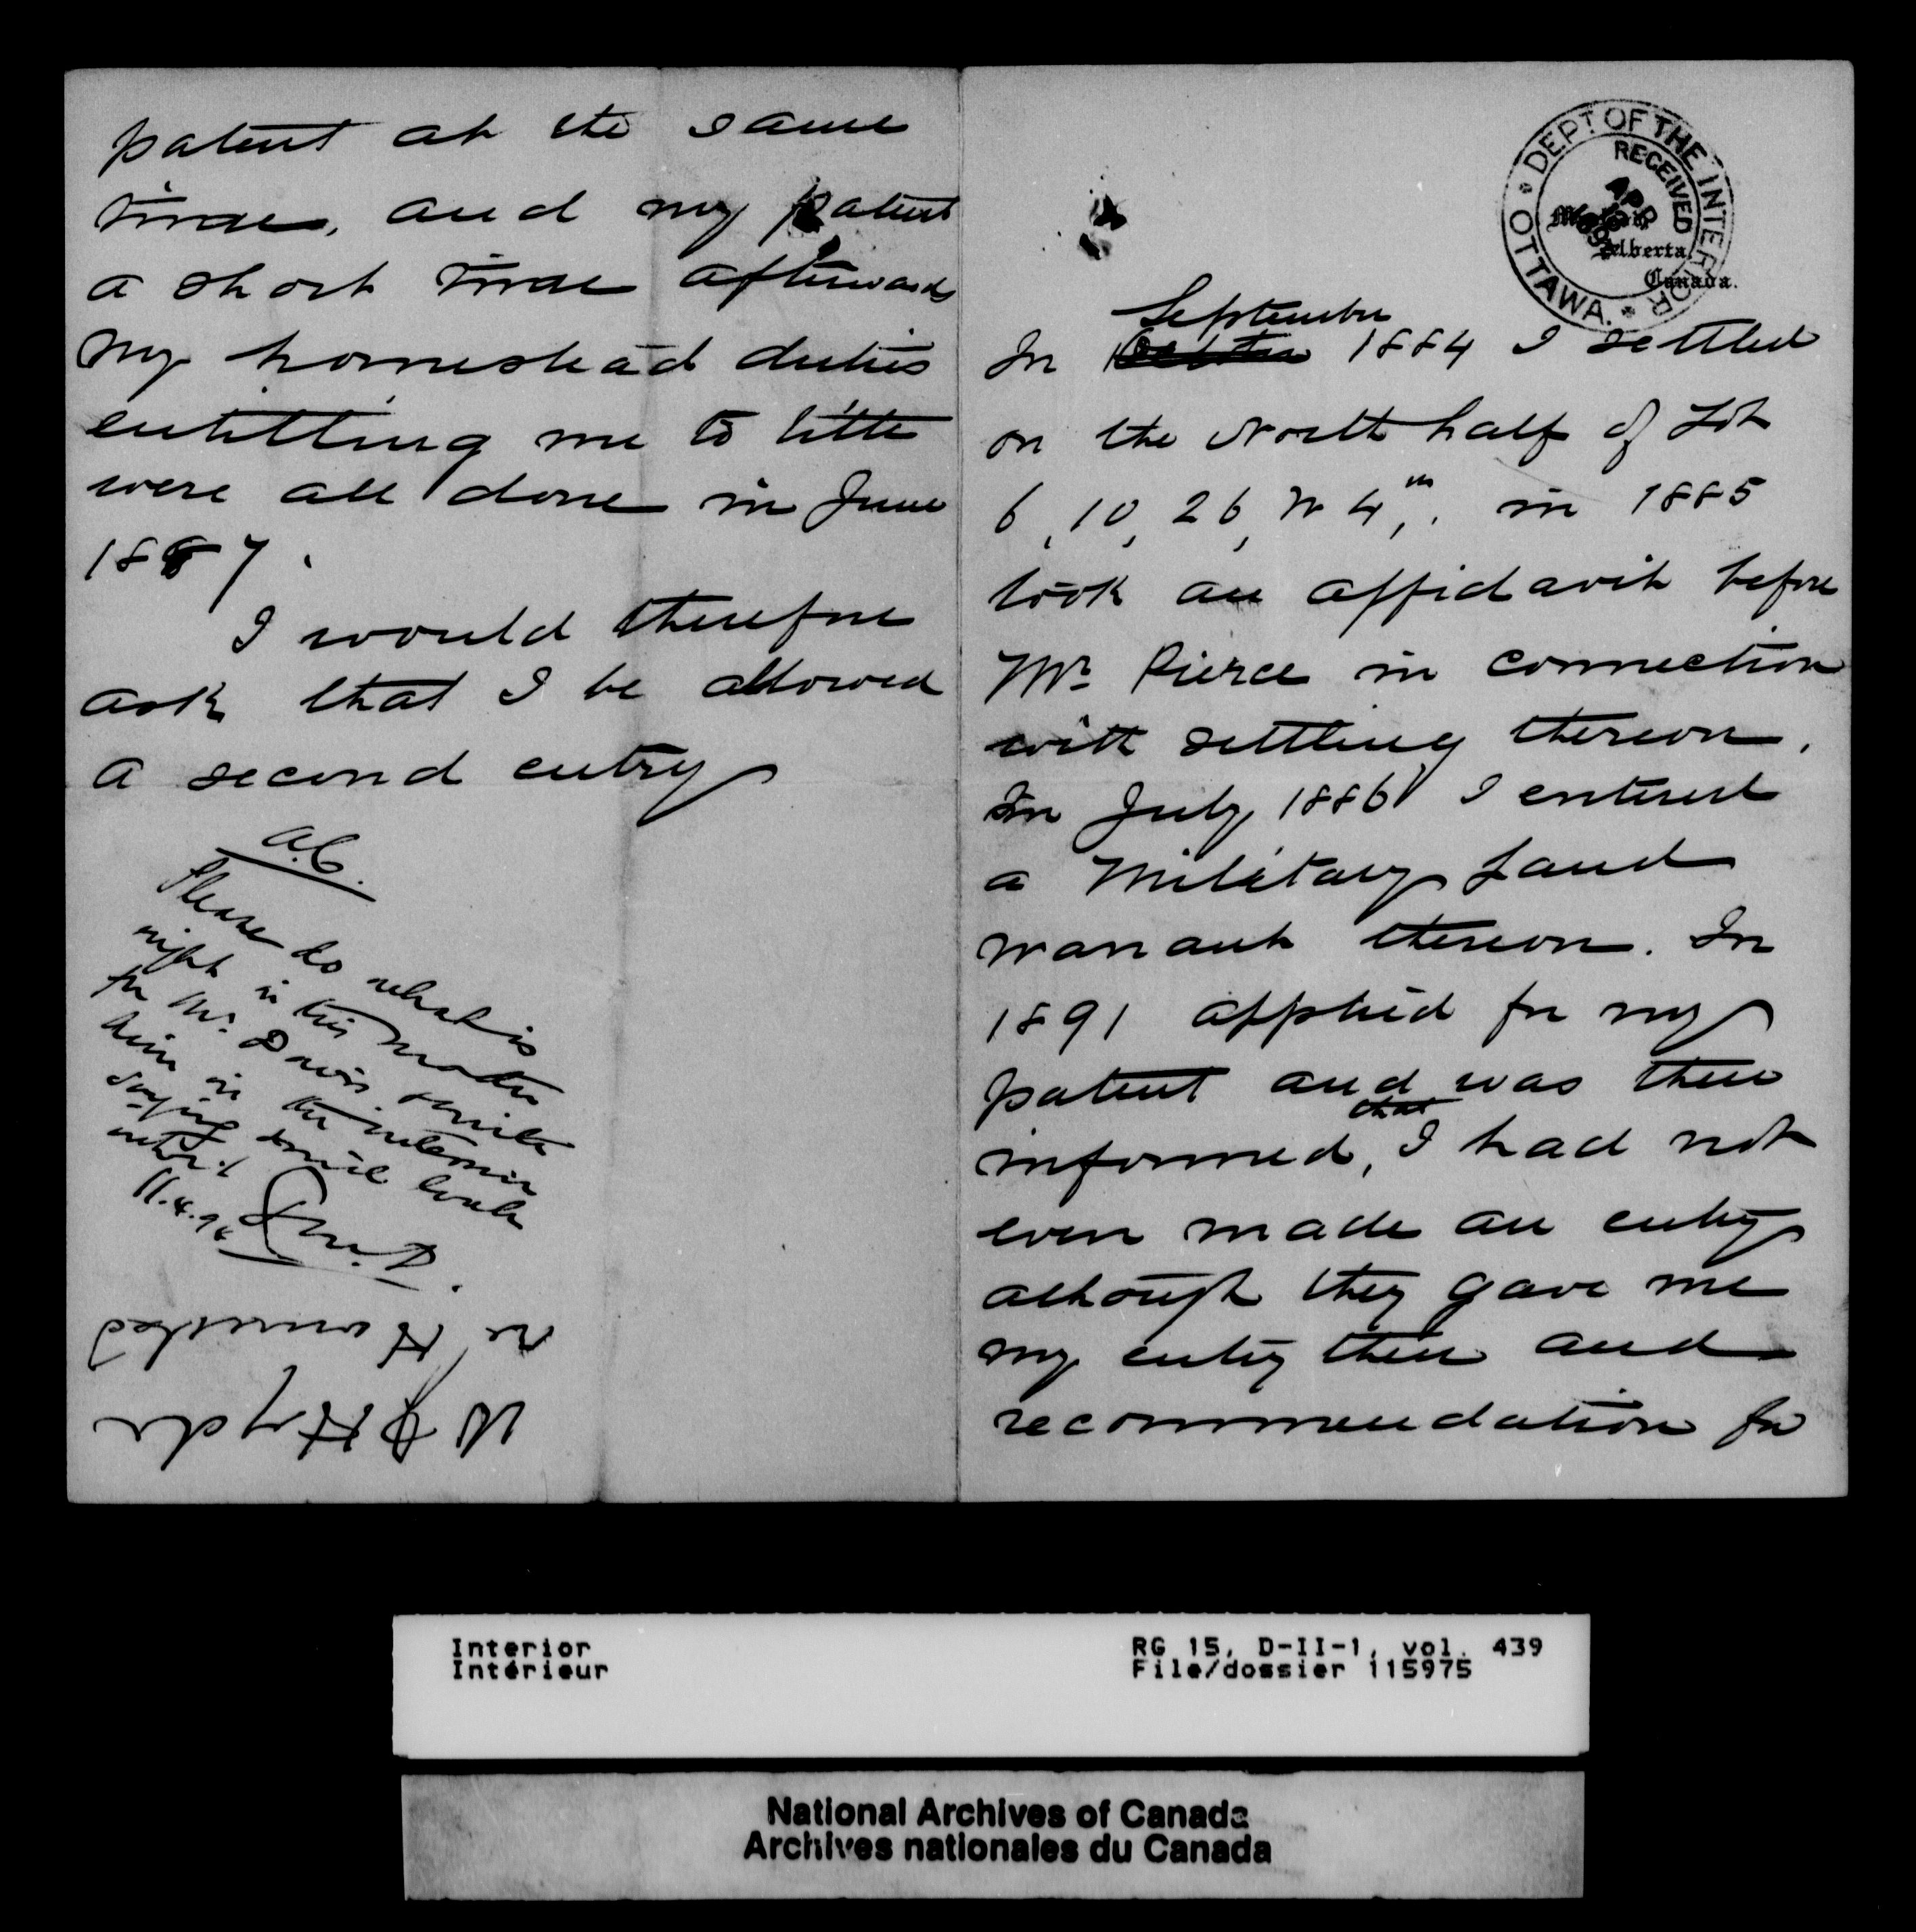 DEPT OF THE INTERIOR
OTTAWA.
RECEIVED
APR
Alberta
Canada.
September
In October 1884 I settled
on the North half of Lot
6, 10, 26, W 4th,. in 1885
took an affidavit before
Mr. Pierce in connection
with settling thereon.
In July 1886 I entered
a Military Land
warrant thereon. In
1891 applied for my
patent and was then
that
informed, I had not
even made an entry
although they gave me
my entry then and
recommendation for
patent at the same
time, and my patent
a short time afterwards
My homestead duties
entitling me to title
were all done in June
1887.
I would therefore
ask that I be allowed
a second entry
A.C.
Please do what is
right in this matter
for Mr. Davis & write
him in the interim
saying
11.4.9
re Homestead
Hyde
Interior
Intérieur
RG 15, D-II-1, vol. 439
File/dossier 115975
National Archives of Canada
Archives nationales du Canada